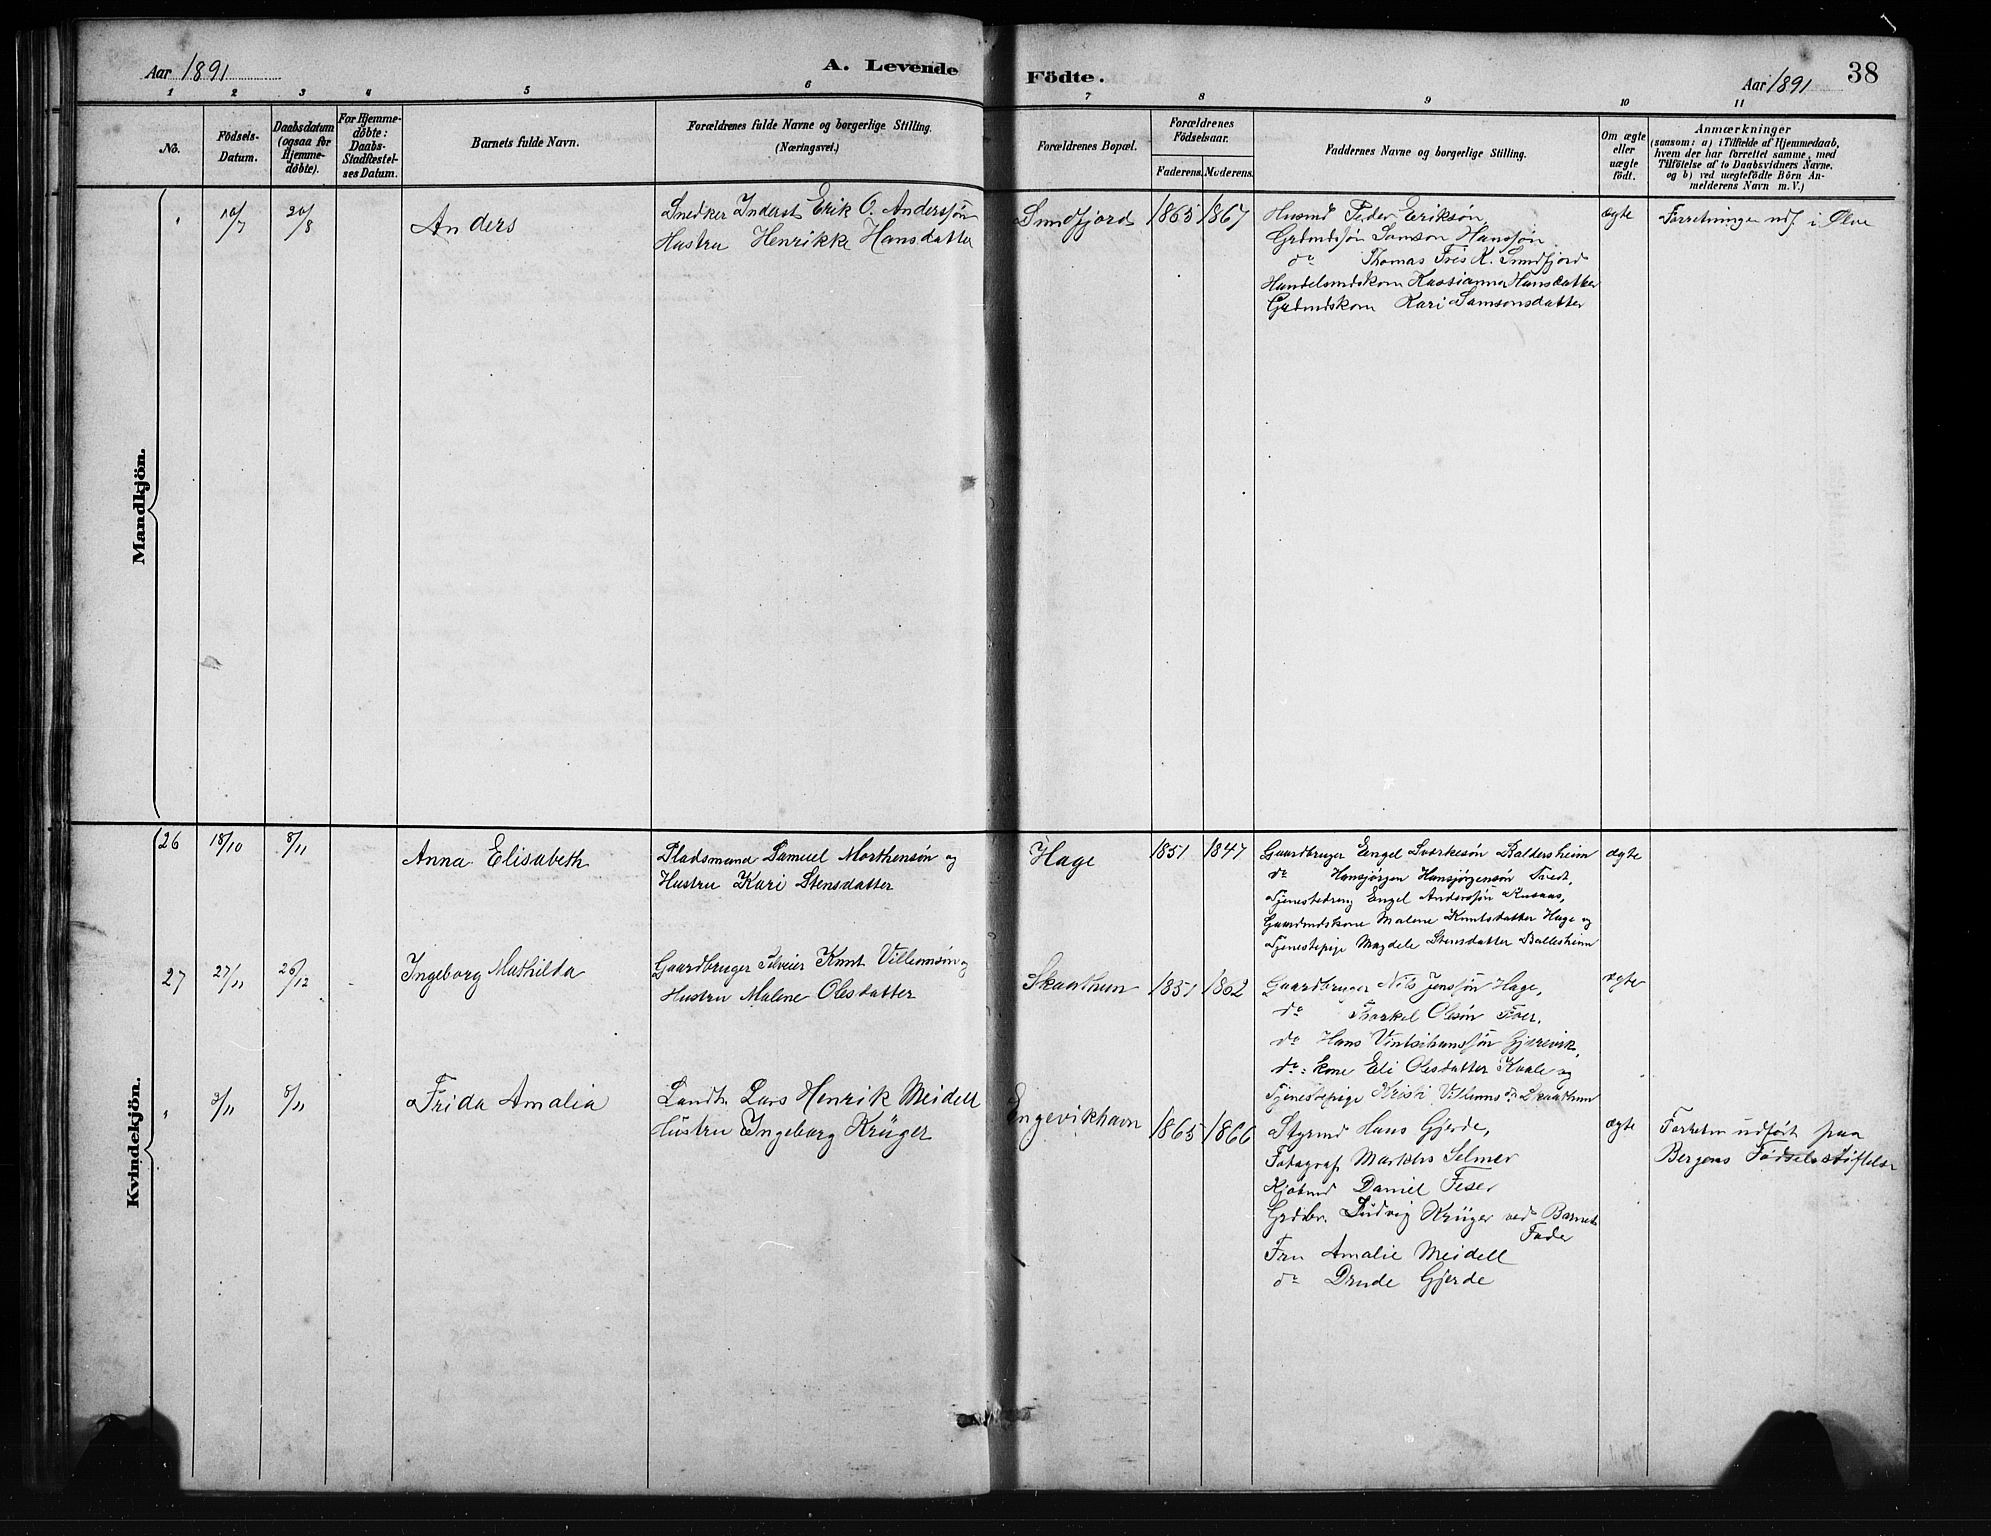 Aar 1891
A. Levende
Födte.
Aar 1891
38
1 2 3 4 5 6 7 8 9 10 11
No.
Födsels-
Datum.
Daabsdatum
(ogsaa for
Hjemme-
döbte).
For Hjemme-
döbte:
Daabs-
Stadfæstel-
ses Datum.
Barnets fulde Navn.
Forældrenes fulde Navne og borgerlige Stilling.
(Næringsvei.)
Forældrenes Bopæl.
Forældrenes
Födselsaar.
Faderens. Moderens.
Faddernes Navne og borgerlige Stilling.
Om ægte
eller
uægte
födt.
Anmærkninger
(saasom: a) i Tilfælde af Hjemmedaab,
hvem der har forrettet samme, med
Tilföielse af to Daabsvidners Navne,
og b) ved uægtefödte Börn An-
melderens Navn m. V.)
Mandkjön.
" 10/7 20/8
Anders
Snedker Inderst Erik O. Anderssøn
Hustru Henrikke Hansdatter
Sundfjord
1865 1867
Husmd Peder Eriksøn
Grdmdssøn Samson Hanssøn
do Thomas Friis K. Sundfjord
Handelsmdskone Kassianna Hansdatter
Grdmdskone Kari Samsonsdatter
ægte
Forretningen udf. i Ølve
Kvindekjön.
26 18/10 8/11
Anna Elisabeth
Pladsmand Samuel Morthensøn og
Hustru Kari Stensdatter
Hage
1851 1847
Gaardbruger Engel Sværkesøn Baldersheim
do Hansjørgen Hansjørgensøn Tvedt,
Tjenestedreng Engel Anderssøn
Gaardmdskone Malene Knutsdatter Hage og
Tjenestepige Magdele Stensdatter Ballesheim
ægte
27 27/11 26/12
Ingeborg Mathilda
Gaardbruger Knut Villumsøn og
Hustru Malene Olesdatter
Skaathun
1851 1862
Gaardbruger Nils Jenssøn Hage,
do Thorkel Olesøn
do Hans Gjerevik,
do = kone Eli Olesdatter Kvale og
Tjenestepige Kristi Villums dr. Skaathun
ægte
" 3/11 8/11
Frida Amalia
Landh. Lars Henrik Meidell
Hustru Ingeborg Krüger
Engevikhavn
1865 1866
Styrmd Hans Gjerde,
Fotograf Markus Selmer
Kjøbmd Daniel
Grdbr. Ludvig Krüger ved Barnets
Fader
Fru Amalie Meidell
do Drude Gjerde
ægte
Forretn udført paa
Bergens Fødselsstiftelse